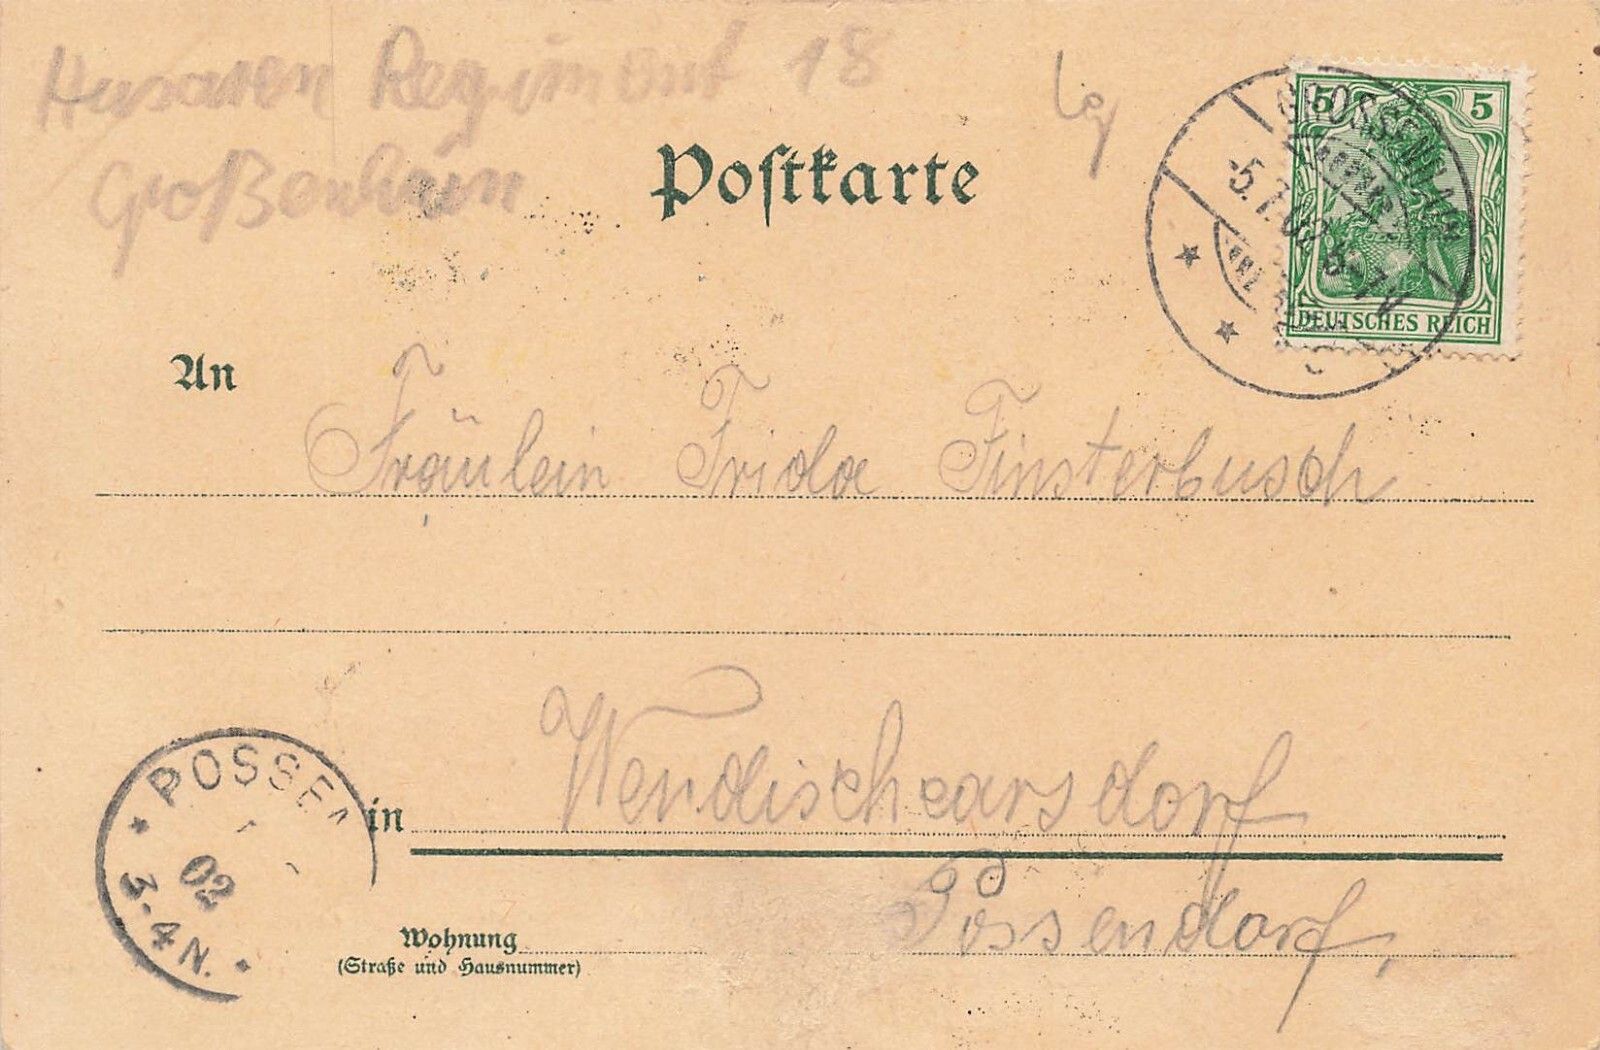 Husaren Regiment 18
Großenhain
Postkarte
5 5
DEUTSCHES REICH
GROSSENHAIN
-5.7.02 6-7N
An
Fräulein Frida Finsterbusch
in Wendischcarsdorf
Possendorf,
Wohnung
(Straße und Hausnummer)
* POSSEN
02
3-4N. *